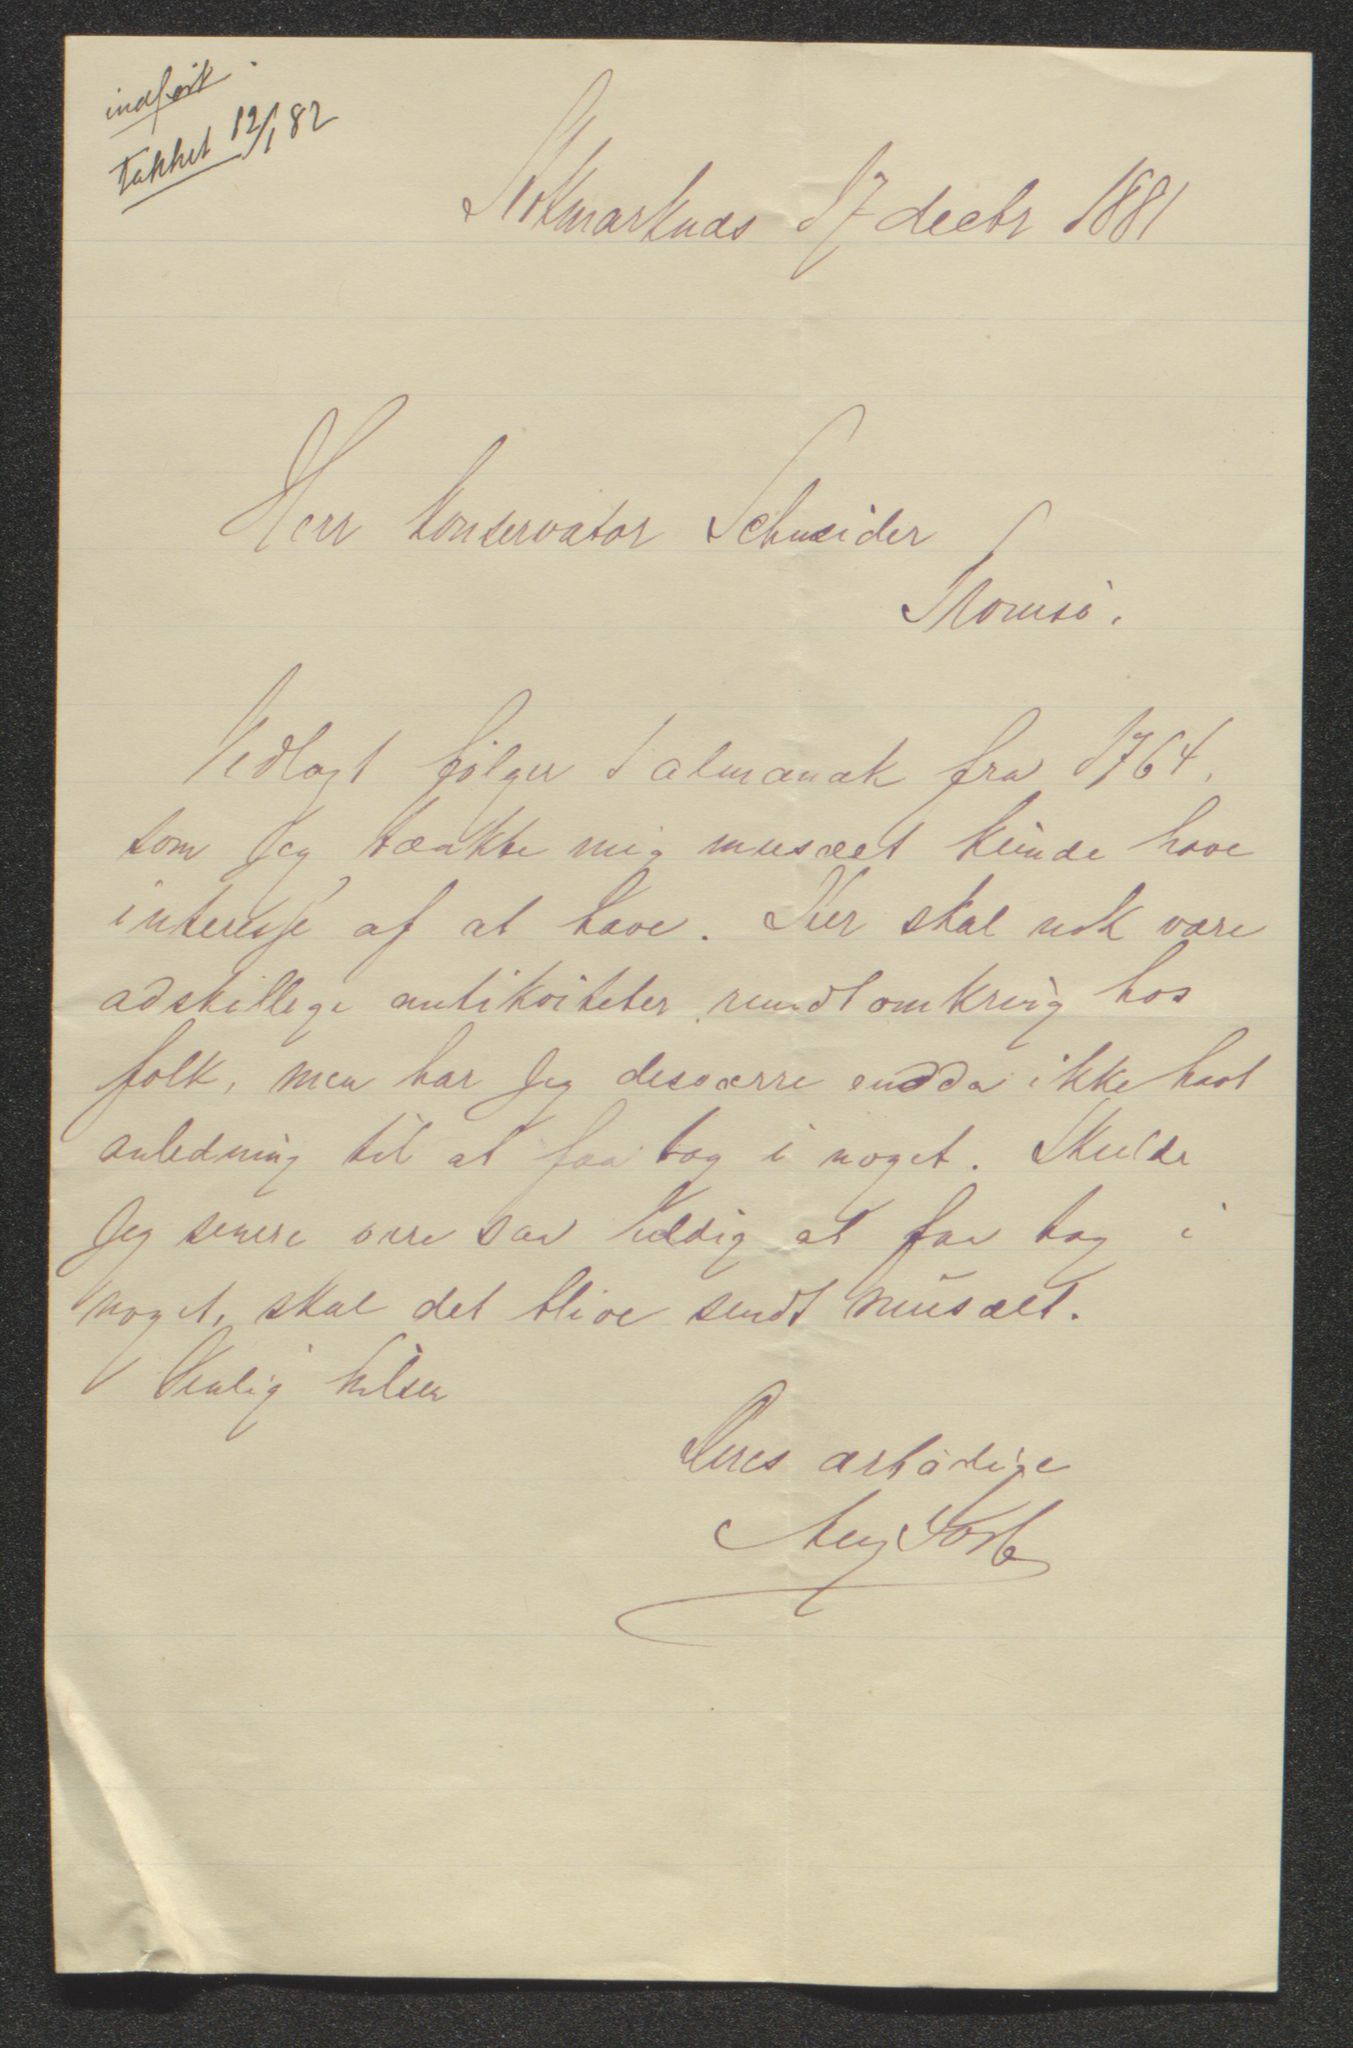 indført.
Takket 12/1 82
Stokmarknæs 17 decbr 1881
Herr Konservator Schneider
Tromsø.
Vedlagt følger 1 almanak fra 1764,
som jeg tænkte mig musæet kunde have
interesse af at have. Her skal nok være
adskillege antikviteter rundt omkring hos
folk, men har jeg desværre endda ikke havt
anledning til at faa tag i noget. Skulde
jeg senere være saa heldig at faa tag i
noget, skal det blive sendt musæet.
Venlig hilsen
Deres ærbødige
Aug